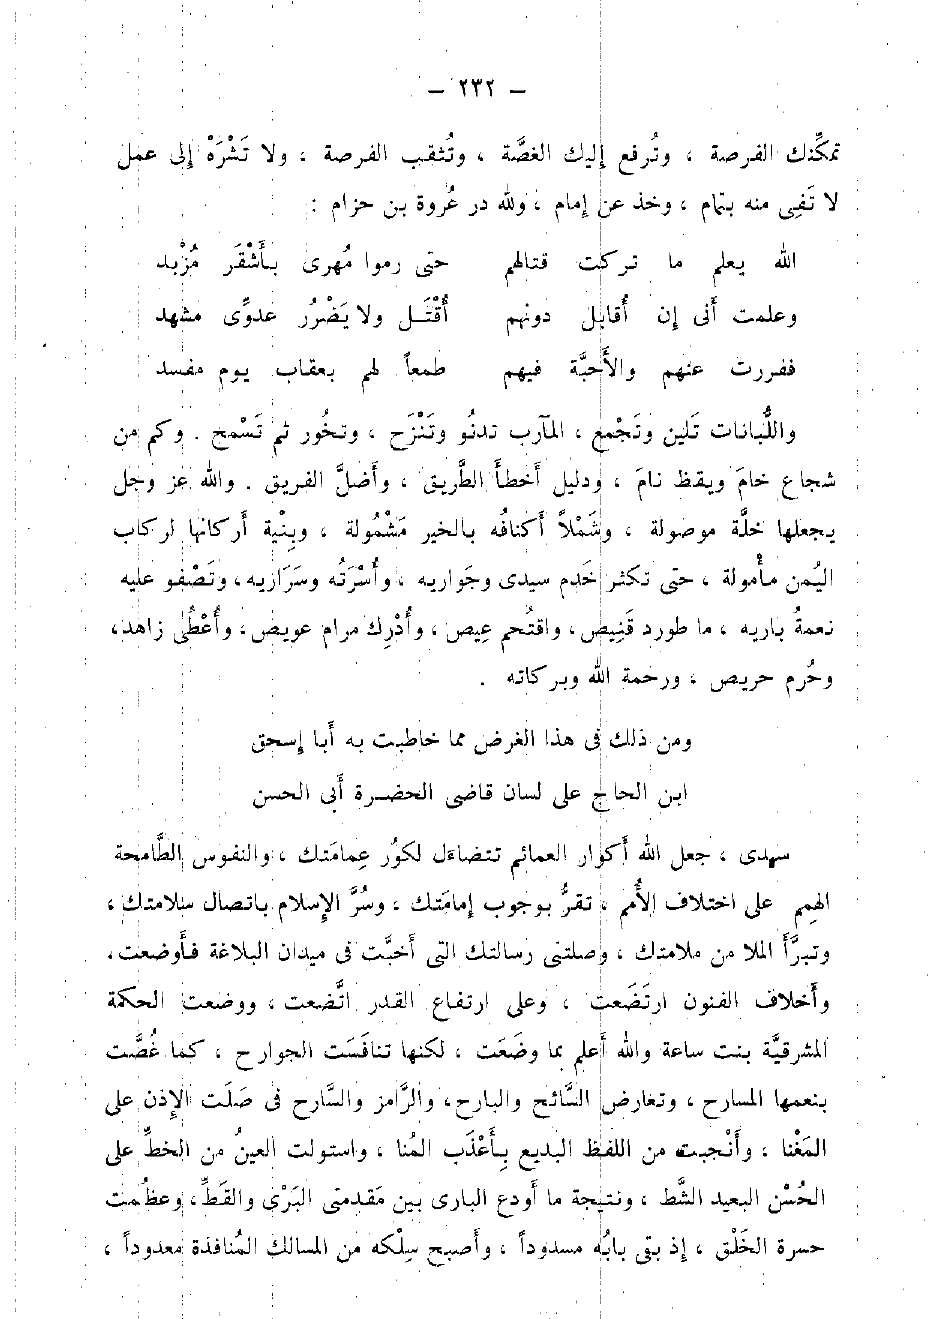 — ٢٣٢ —
تمكِّنك الفرصة ، وتُرفع إليك الغصَّة ، وتُثقب الفرصة ، ولا تَشْرَهْ إلى عمل
لا تَفِى منه بتمام ، وخذ عن إمام ، ولله در عُروة بن حزام :
الله يعلم ما تركت قتالهم حتى رموا مُهرى بأَشْقَر مُزْبد
وعلمت أنى إن أُقابل دونهم أُقْتَل ولا يَضْرُر عدوِّى مشهد
ففررت عنهم والأَحبَّة فيهم طمعاً لهم بعقاب يوم مفسد
واللُّبانات تَلين وتَجْمع ، المآرب تدنُو وتَنْزَح ، وتخُور ثم تَسْمح . وكم من
شجاع خامَ ويقظ نامَ ، ودليل أخطأَ الطَّريق ، وأضلَّ الفريق . والله عز وجل
يجعلها خلَّة موصولة ، وشَمْلاً أكنافُه بالخير مَشْمُولة ، وبِنْية أركانها لركاب
اليُمن مأْمولة ، حتى تكثر خَدم سيدى وجواريه ، وأُسْرَتُه وسَرَاريه ، وتَضْفو عليه
نعمةُ باريه ، ما طورد قَنِيص ، واقتُحم عِيص ، وأُدْرِك مرام عويص ، وأُعْطَى زاهد ،
وحُرم حريص ، ورحمة الله وبركاته .
ومن ذلك فى هذا الغرض مما خاطبت به أبا إسحق
ابن الحاج على لسان قاضى الحضرة أبى الحسن
سيدى ، جعل الله أكوار العمائم تتضاءل لكوْر عِمامَتك ، والنفوس الطَّامحة
الهِمم على اختلاف الأُمم ، تقرُّ بوجوب إمامَتك ، وسُرَّ الإسلام باتصال سلامتك ،
وتبرَّأَ الملا من ملامتك ، وصلتنى رسالتك التى أخبَّت فى ميدان البلاغة فأَوضعت ،
وأخلاف الفنون ارتَضَعت ، وعلى ارتفاع القدر اتَّضعت ، ووضعت الحكمة
المشرقيَّة بنت ساعة والله أعلم بما وضَعَت ، لكنها تنافَست الجوارح ، كما غُصَّت
بنعمها المسارح ، وتعارض السَّائح والبارح ، والرَّامز والسَّارح فى صَلَت الإذن على
المَغْنا ، وأَنْجبت من اللفظ البديع بِأَعْذَب المُنا ، واستولت العينُ من الخطِّ على
الحُسْن البعيد الشَّط ، ونتيجة ما أودع البارى بين مَقدمتى البَرْى والقَطِّ ، وعظُمت
حسرة الخَلْق ، إذ بقى بابُه مسدوداً ، وأصبح سِلْكه من المسالك المُنافذة معدوداً ،